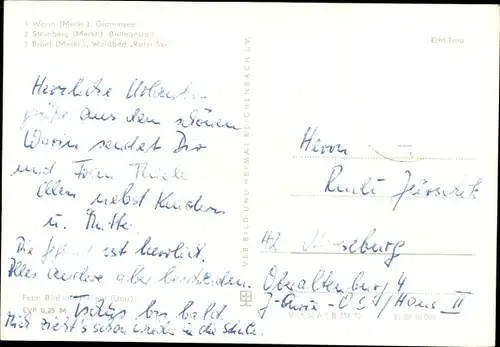 1 Warin (Meckl.), Glammsee
2 Sternberg (Meckl.), Badeanstalt
3 Brüel (Meckl.), Waldbad „Roter See"
Echt Foto
Herzliche Urlaubs-
grüße aus dem schönen
Warin sendet Dir
und Frau
Ellen nebst Kindern
u. Mutti.
Die Gegend ist herrlich.
Alles andere aber bescheiden.
Tschüs bis bald.
Mich zieht's schon wieder in die Schule.
Foto: Bild und Heimat
EVP 0,25 M
VEB BILD UND HEIMAT REICHENBACH I. V.
Herrn
Rudi
42 Merseburg
Oberaltenburg 4
Haus II